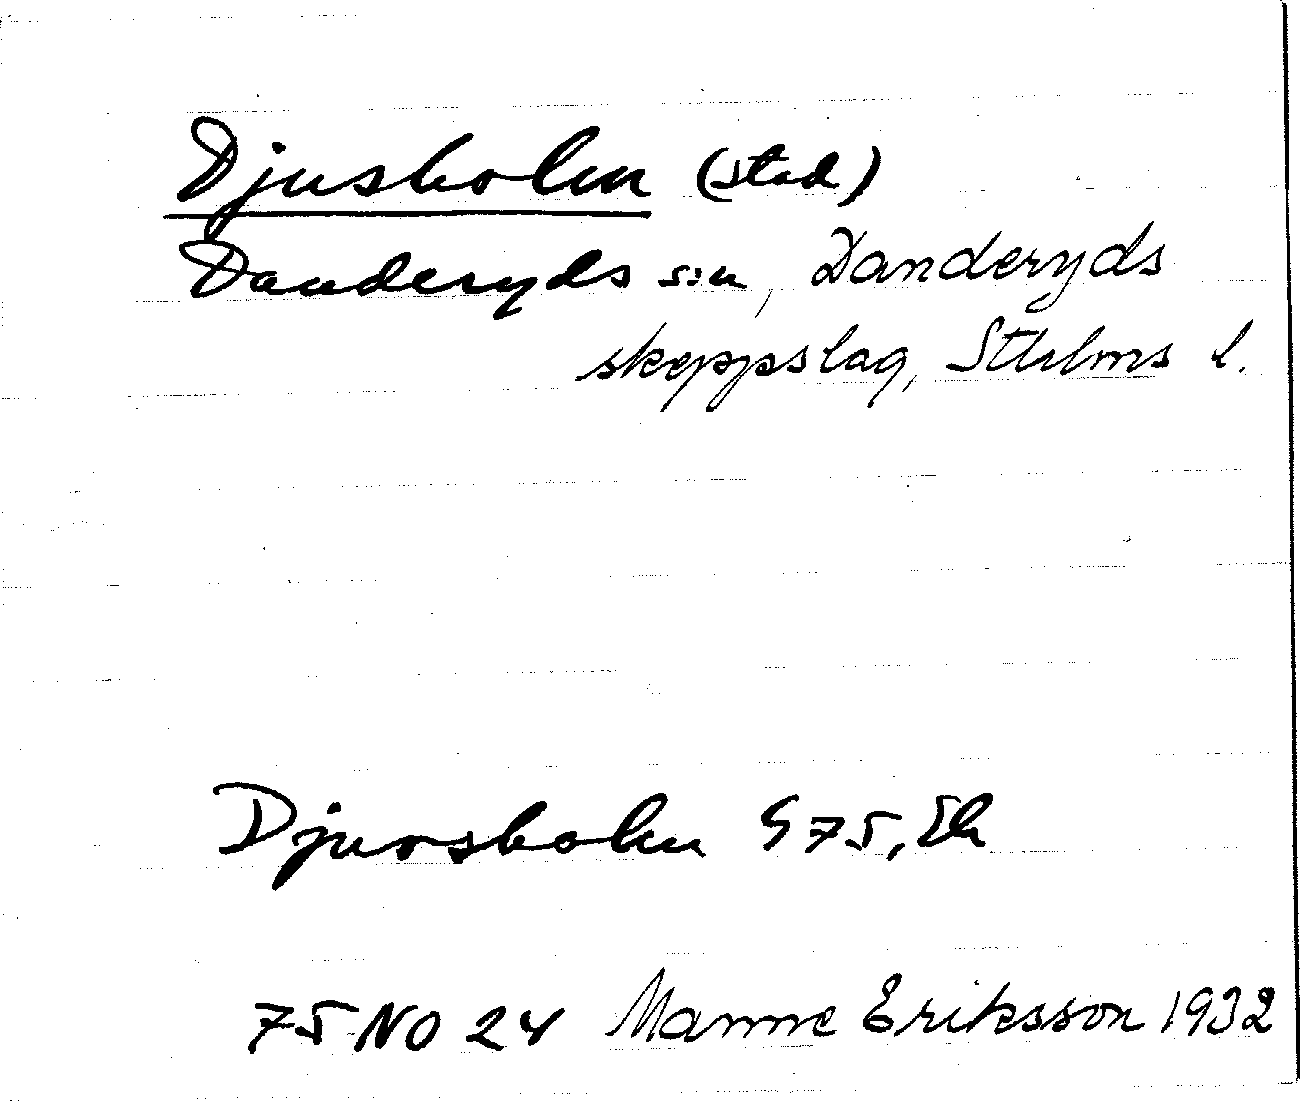 Djusholm (stad)
Danderyds s:n, Danderyds
skeppslag, Sthlms l.
Djursholm G75, Ek
75 NO 24 Manne Eriksson 1932